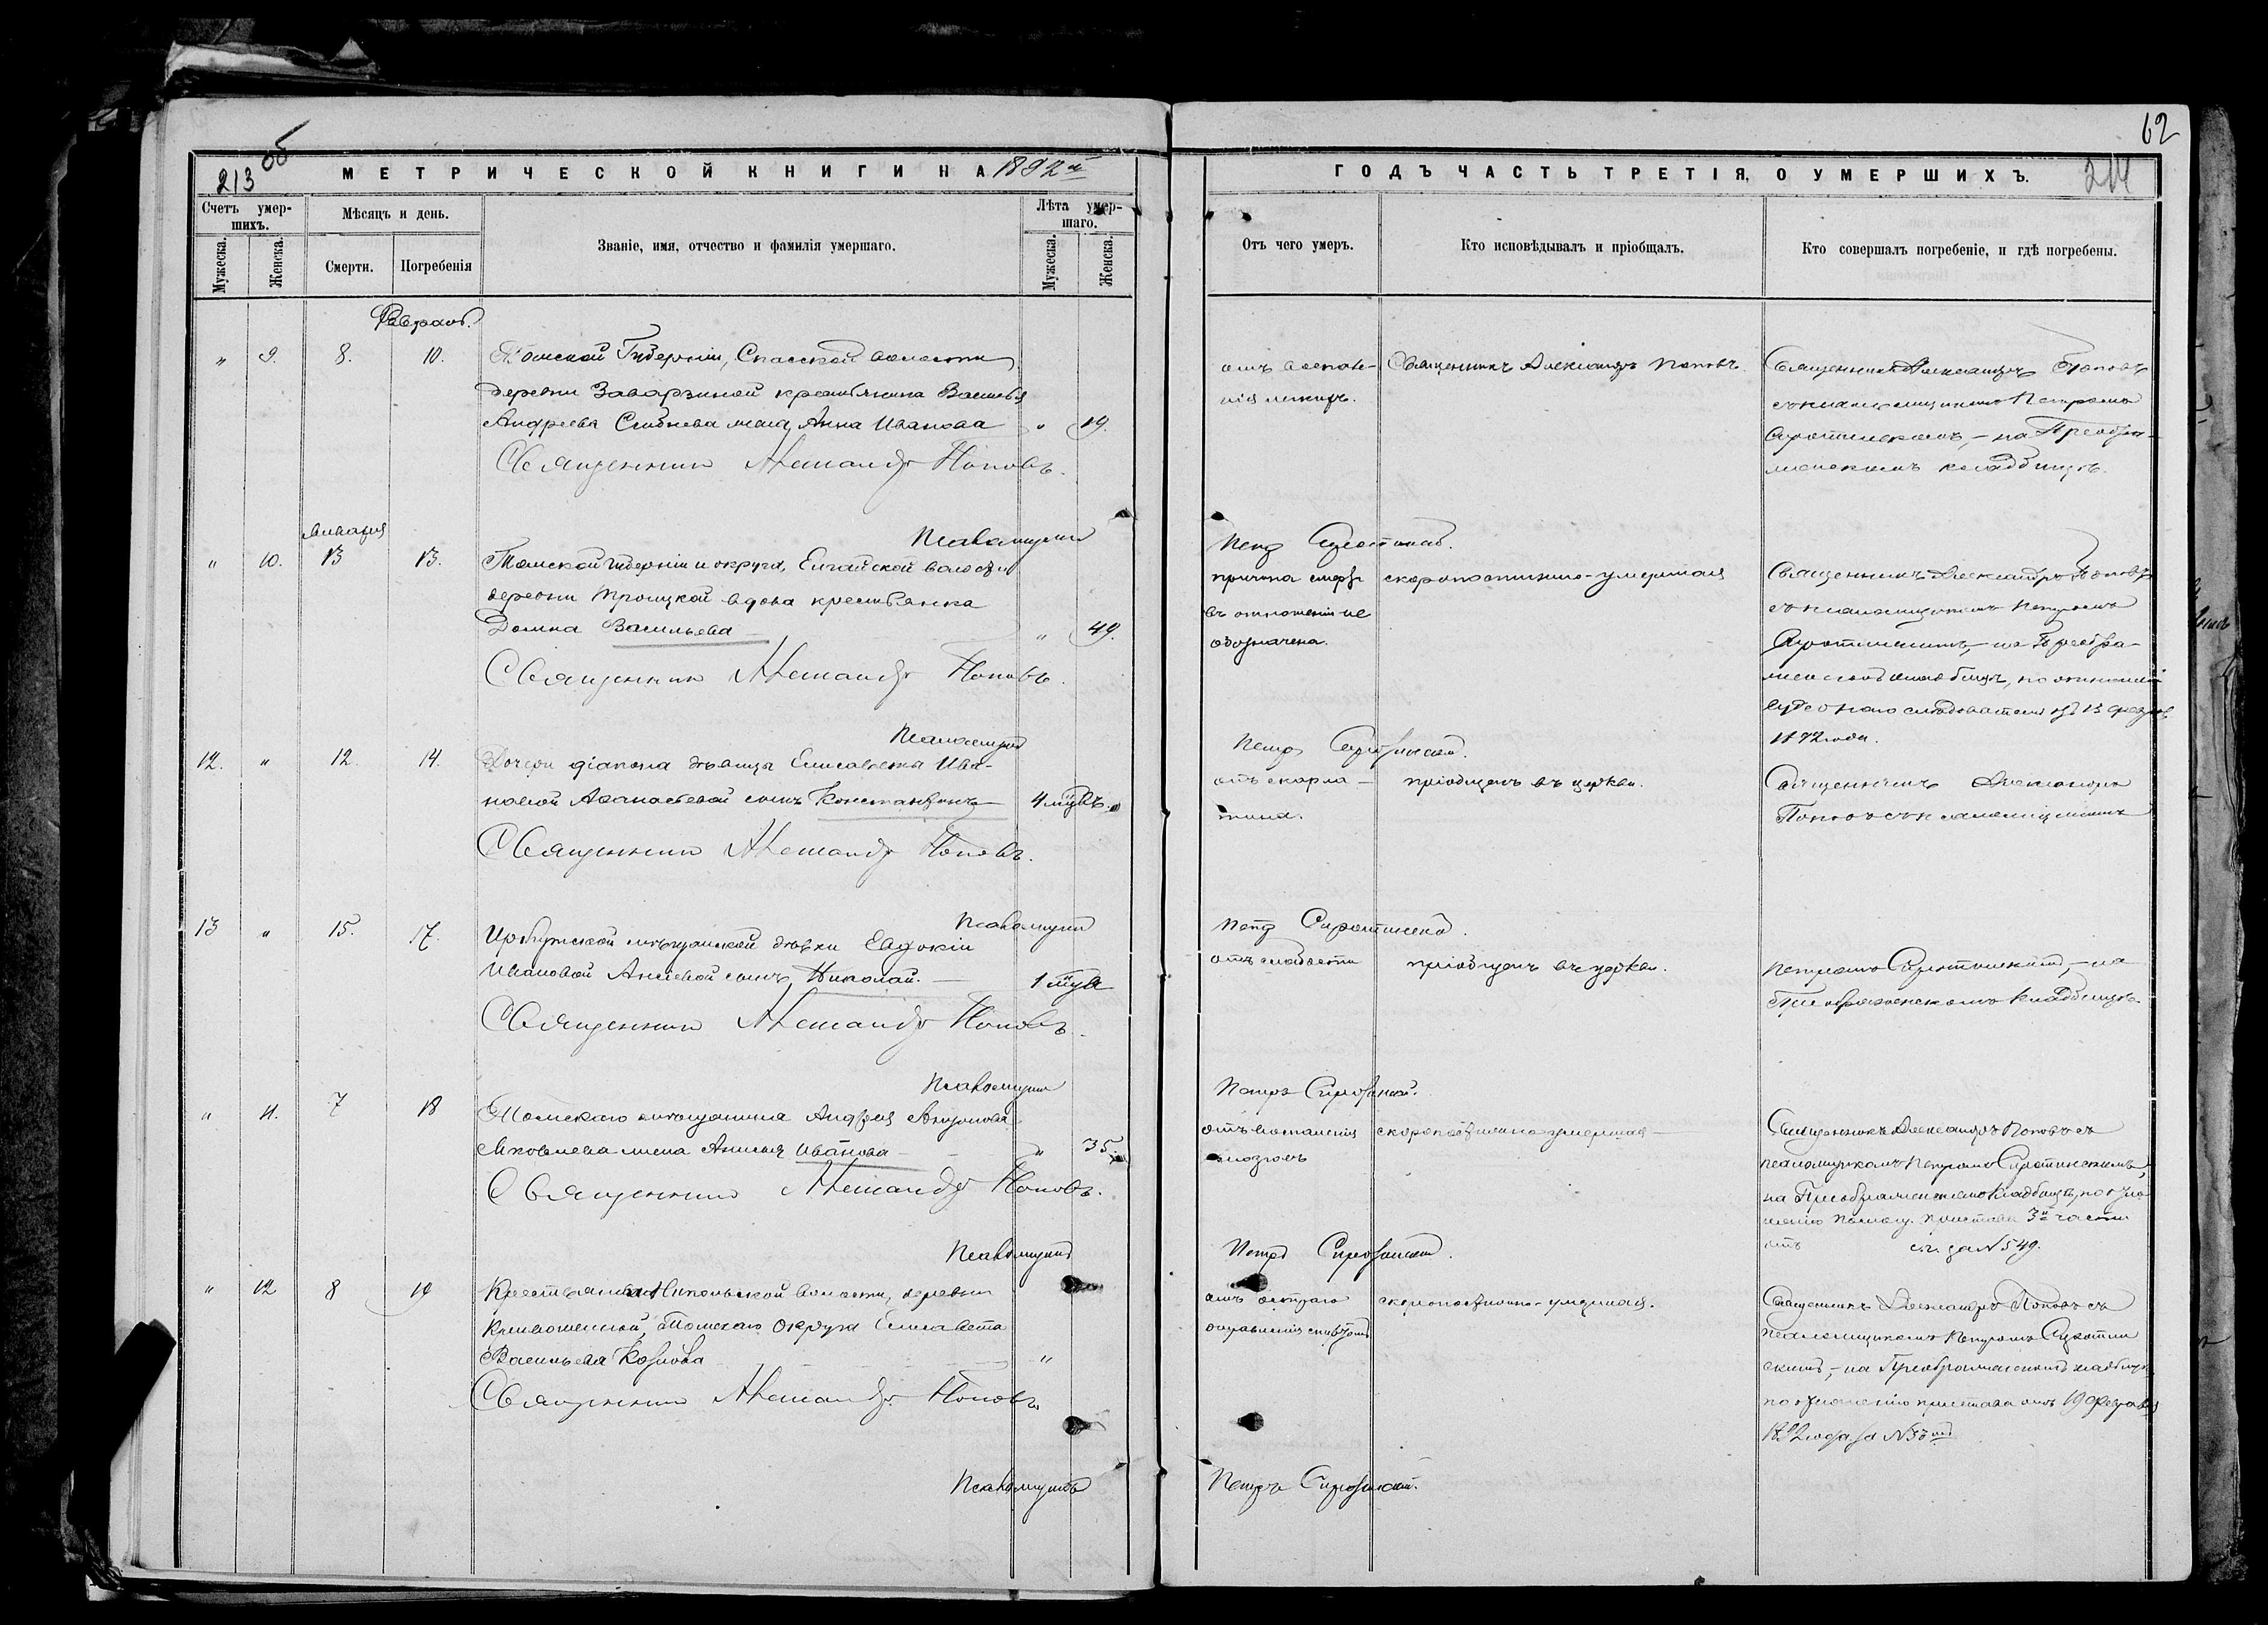 62
213 об
МЕТРИЧЕСКОЙ КНИГИ НА 1892й
ГОДЪ ЧАСТЬ ТРЕТІЯ, О УМЕРШИХЪ.
214
Счетъ умер-
шихъ.
Мужеска.
Женска.
Мѣсяцъ и день.
Смерти.
Погребенія
Званіе, имя, отчество и фамилія умершаго.
Лѣта умер-
шаго.
Мужеска.
Женска.
Отъ чего умеръ.
Кто исповѣдывалъ и пріобщалъ.
Кто совершалъ погребеніе, и гдѣ погребены.
Февраль.
" 9. 8. 10.
Томской Губерніи, Спасской волости
деревни Заварзиной крестьянина Василья
Андреева жена Анна Иванова " 19.
Священникъ Александръ Поповъ.
отъ воспале-
нія легкихъ.
Священникъ Александръ Поповъ
Священникъ Александръ Поповъ
съ псаломщикомъ Петромъ
Сиротинскимъ, – на Преобра-
женскомъ кладбищѣ.
Псаломщикъ Петръ Сиротинскій.
Января
" 10. 13 13.
Томской губерніи и округа, волости
деревни Троицкой вдова крестьянка
Домна Васильева " 49.
Священникъ Александръ Поповъ.
причина смерти
въ отношеніи не
обозначена.
скоропостижно-умершая
Священникъ Александръ Поповъ
съ псаломщикомъ Петромъ
Сиротинскимъ, – на Преобра-
женскомъ кладбищѣ, по отношенію
Судебнаго слѣдователя отъ 13 февраля
1892 года.
Псаломщикъ Петръ Сиротинскій.
12. " 12. 14.
Дочери діакона дѣвицы Елисаветы Ива-
новой Аѳанасьевой сынъ Константинъ 4 мцвъ.
Священникъ Александръ Поповъ.
отъ скарла-
тина.
пріобщенъ въ церкви.
Священникъ Александръ
Поповъ съ псаломщикомъ
Псаломщикъ Петръ Сиротинскій.
13 " 15. 17.
Ирбитской мѣщанской дѣвки Евдокіи
Ивановой сынъ Николай. 1 мца
Священникъ Александръ Поповъ.
отъ слабости
пріобщенъ въ церкви.
Петромъ Сиротинскимъ, – на
Преображенскомъ кладбищѣ.
Псаломщикъ Петръ Сиротинскій.
" 11. 7 18
Томскаго мѣщанина Андрея
Яковлева жена Иванова " 35.
Священникъ Александръ Поповъ.
отъ воспаленія
мозговъ
скоропостижно умершая
Священникъ Александръ Поповъ съ
псаломщикомъ Петромъ Сиротинскимъ,
на Преображенскомъ кладбищѣ, по отно-
шенію помощ. пристава 3й части
отъ с.г. за № 549.
Псаломщикъ Петръ Сиротинскій.
" 12 8 19
Крестьянка Никольской волости, деревни
Кривошеиной, Томскаго округа Елисавета
Васильева Козлова "
Священникъ Александръ Поповъ.
отъ остраго
отравленія спиртомъ
скоропостижно-умершая.
Священникъ Александръ Поповъ съ
псаломщикомъ Петромъ Сиротин
скимъ, – на Преображенскомъ кладбищѣ
по отношенію пристава отъ 19 февраля
1892 года за №
Псаломщикъ Петръ Сиротинскій.